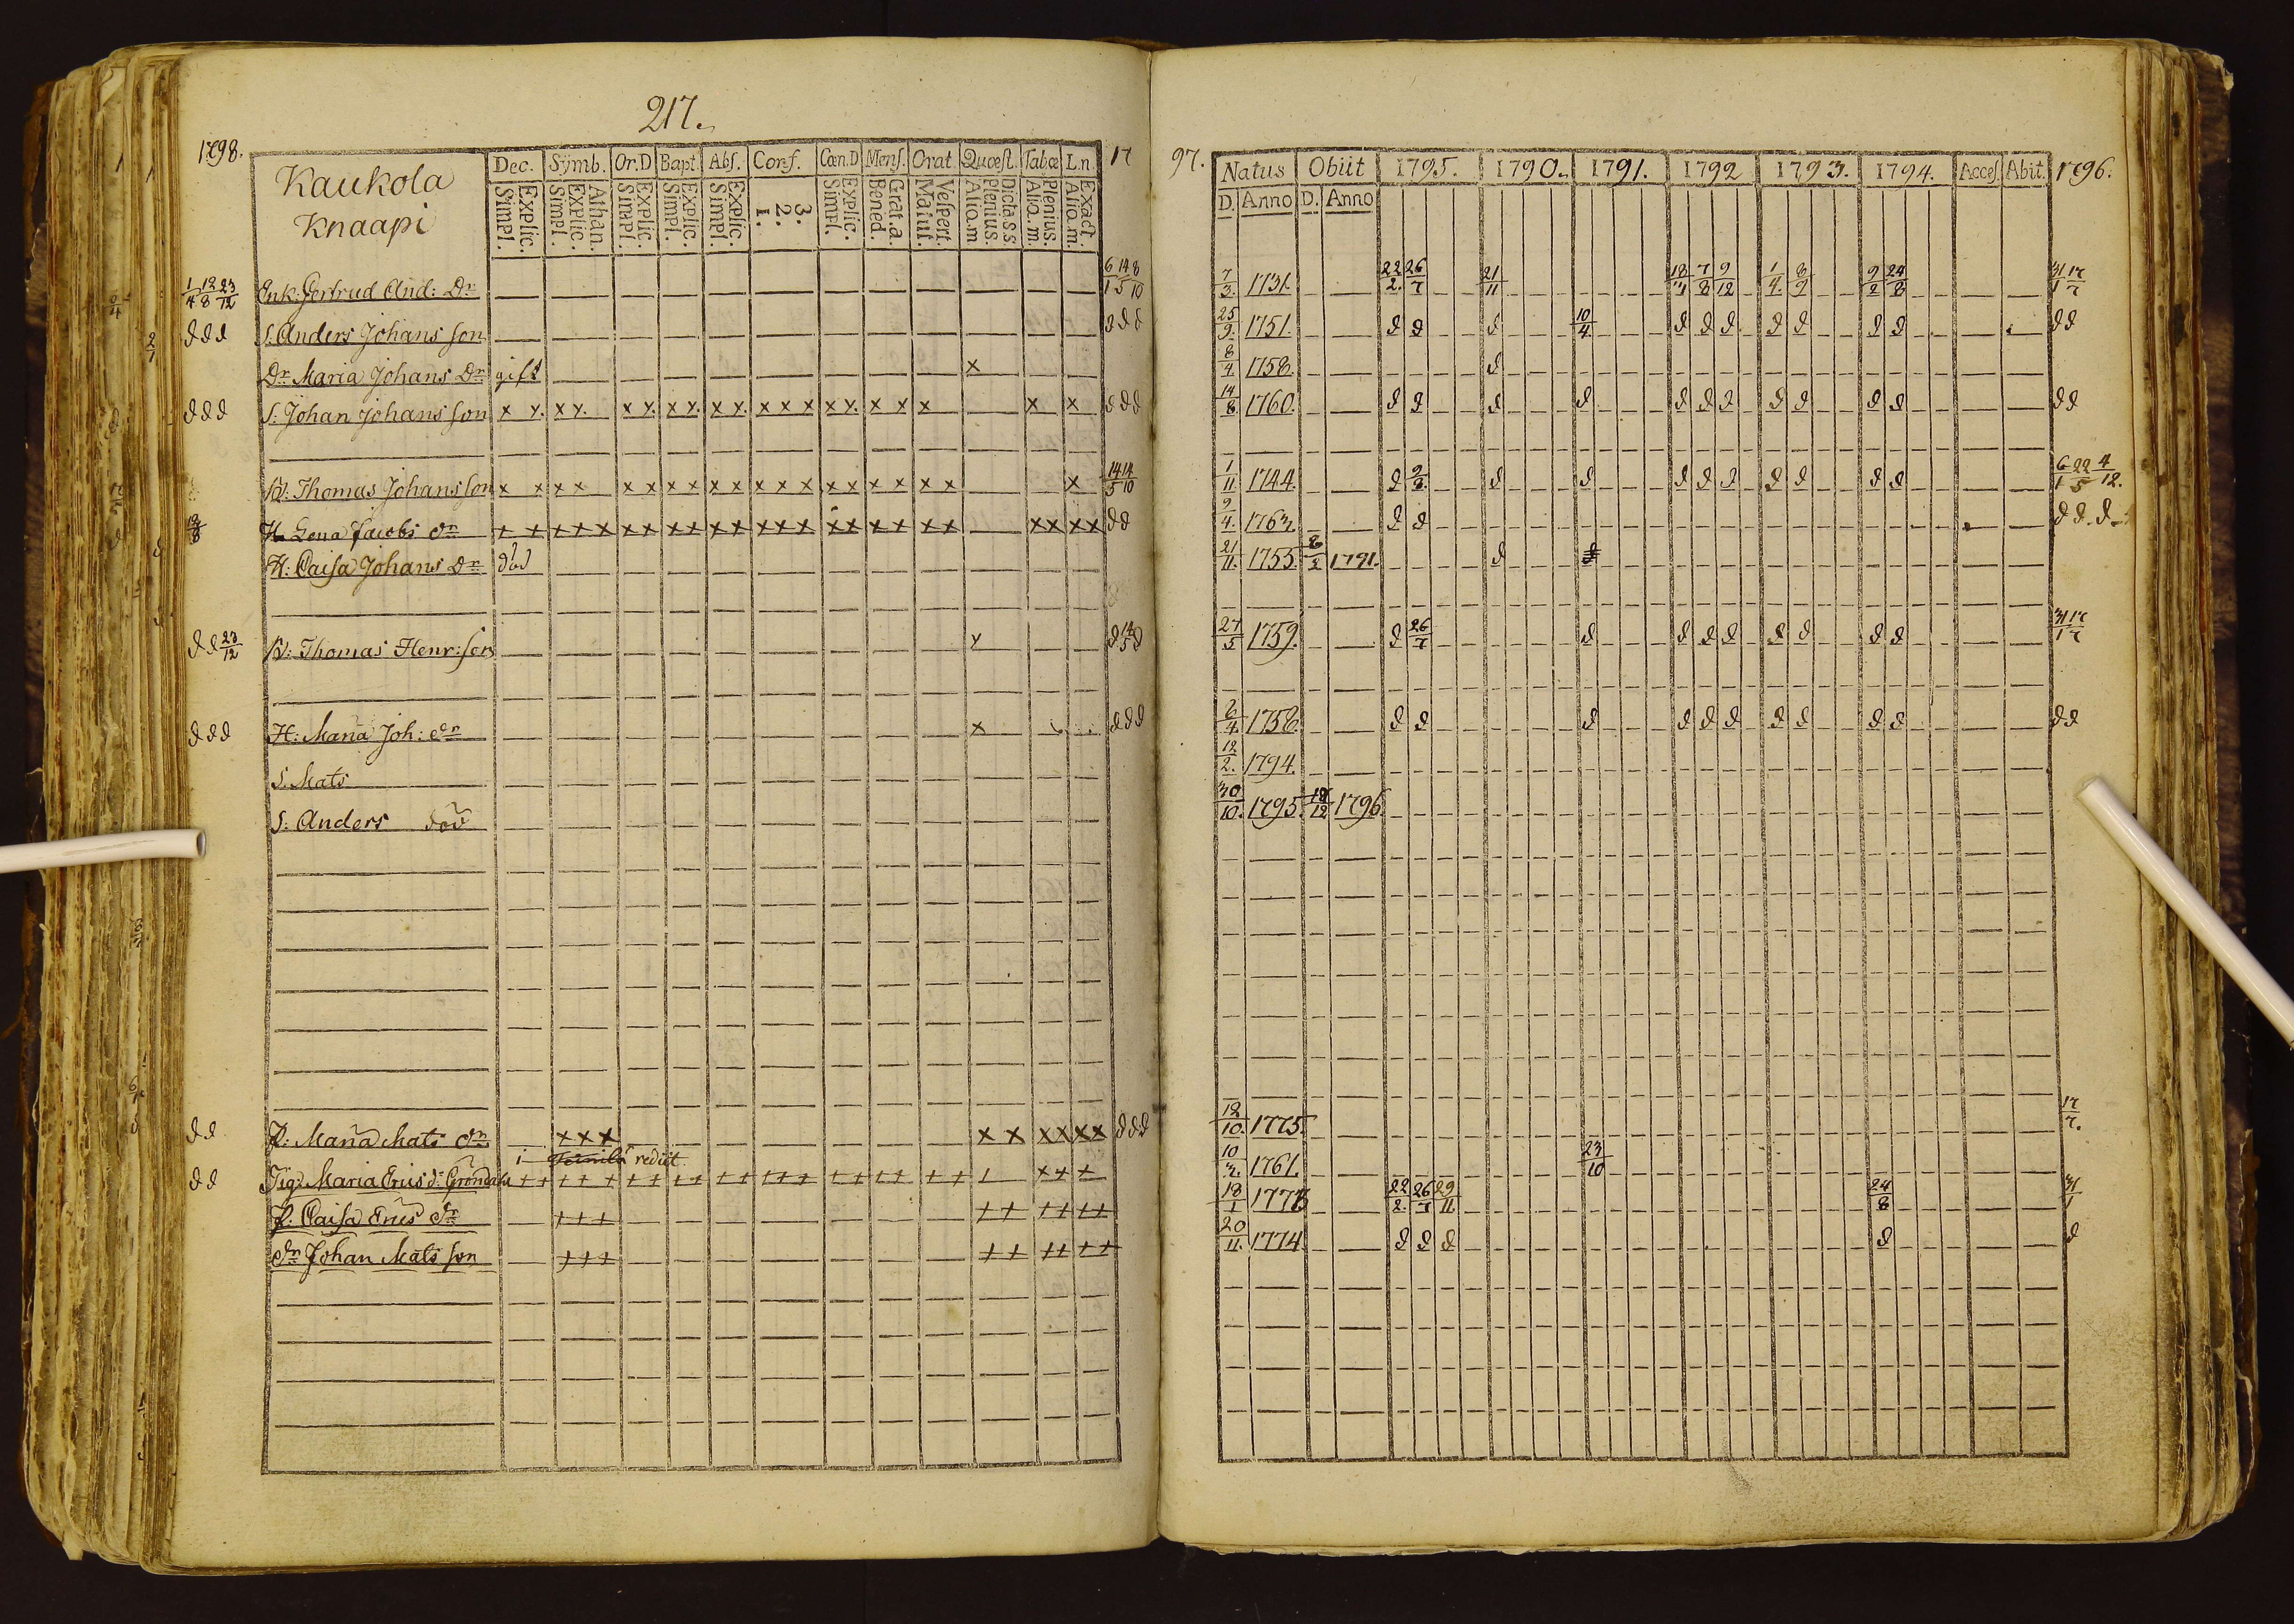 217.
1798.
Kaukola
Knaapi
Dec. Symb. Or.D Bapt. Abs. Conf. Cœn.D Mens. Orat. Quæst. Tabæ L.n. 17
Explic. Simpl. Athan. Explic. Simpl. Explic. Simpl. Explic. Simpl. Explic. Simpl. 3. 2. 1. Explic. Simpl. Grat.a. Bened. Vespert. Matut. Dicta s.s. Plenius. Alio.m. Plenius. Alio.m. Exact. Alio.m.
1/4 12/8 23/12 Enk: Gertrud And: Dr 6/1 14/5 8/10
d d d S: Anders Johans son d d d
Dr Maria Johans Dr gift x
d d d S: Johan Johans son x x x x x x x x x x x x x x x x x x x x d d d
B: Thomas Johans son x x x x x x x x x x x x x x x x x x x x 14/5 14/10
12/8 H. Lena Jacobs dr + + + + x x x x x x x x x x x x x x x x x x x x x d d
H: Caisa Johans Dr död
d d 23/12 B: Thomas Henr: son x d 14/5 d
d d d H: Maria Joh: dr x d d d
S. Mats
S: Anders död
d d P: Maria Mats dr x x x x x x x x x d d d
i rediit
d d Pig: Maria Erics dr Gröndahl + + + + + + + + + + + + + + + + + + + + + x + +
P: Caisa Erics dr + + + + + + + + +
dr Johan Mats son + + + + + + + + +
97. Natus Obiit 1795. 1790. 1791. 1792 1793. 1794. Acces. Abit. 1796.
D. Anno D. Anno
7/3. 1731. 22/2. 26/7 21/11 18/4 7/8 9/12 1/4. 8/9 9/2 24/8 31/1 17/7
25/9. 1751. d d d 10/4 d d d d d d d d d
8/4 1758. d
14/8 1760. d d d d d d d d d d d d d
1/11 1744. d 9/8 d d d d d d d d d 6/1 22/5 4/12.
9/4. 1763. d d d d d
21/11. 1755. 1791. d d
27/5 1759. d 26/7 d d d d d d d d 31/1 17/7
8/4. 1758. d d d d d d d d d d d d
12/2. 1794.
30/10. 1795. 18/12 1796.
12/10. 1775. 17/7.
10/3. 1761. 23/10
18/1 1773 22/2. 26/7 29/11 24/8 31/1
20/11. 1774. d d d d d